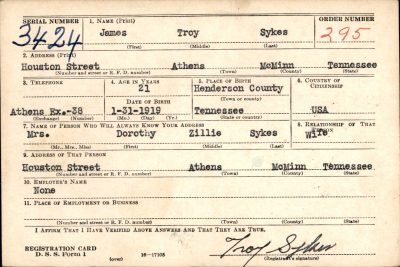 SERIAL NUMBER 1. NAME (Print) ORDER NUMBER
3424 James Troy Sykes 295
(First) (Middle) (Last)
2. ADDRESS (Print)
Houston Street Athens McMinn Tennessee
(Number and street or R. F. D. number) (Town) (County) (State)
3. TELEPHONE 4. AGE IN YEARS 5. PLACE OF BIRTH 6. COUNTRY OF CITIZENSHIP
21 Henderson County
DATE OF BIRTH (Town or county)
Athens Ex.-38 1-31-1919 Tennessee USA
(Exchange) (Number) (Mo.) (Day) (Yr.) (State or country)
7. NAME OF PERSON WHO WILL ALWAYS KNOW YOUR ADDRESS 8. RELATIONSHIP OF THAT PERSON
Mrs. Dorothy Zillie Sykes Wife
(Mr., Mrs., Miss) (First) (Middle) (Last)
9. ADDRESS OF THAT PERSON
Houston Street Athens McMinn Tennessee
(Number and street or R. F. D. number) (Town) (County) (State)
10. EMPLOYER'S NAME
None
11. PLACE OF EMPLOYMENT OR BUSINESS
(Number and street or R. F. D. number) (Town) (County) (State)
I AFFIRM THAT I HAVE VERIFIED ABOVE ANSWERS AND THAT THEY ARE TRUE.
REGISTRATION CARD Troy Sykes
D. S. S. Form 1 (over) 16-17105 (Registrant's signature)